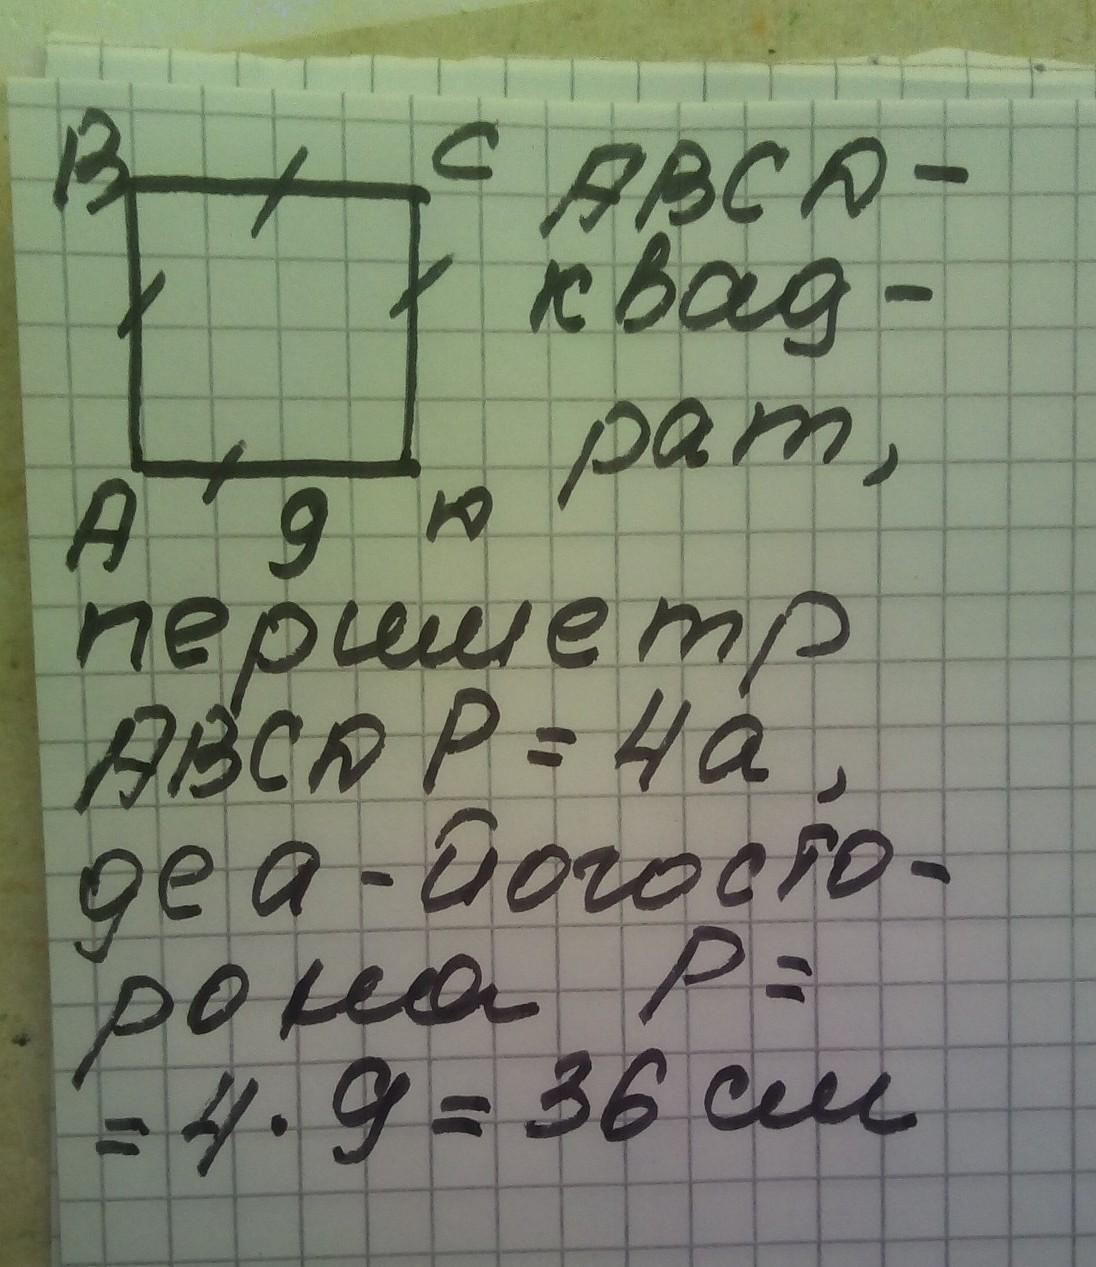 B
C
ABCD -
квад -
рат,
A
9
D
периметр
ABCD P = 4a,
де a - його сто -
рона P =
= 4 · 9 = 36 см